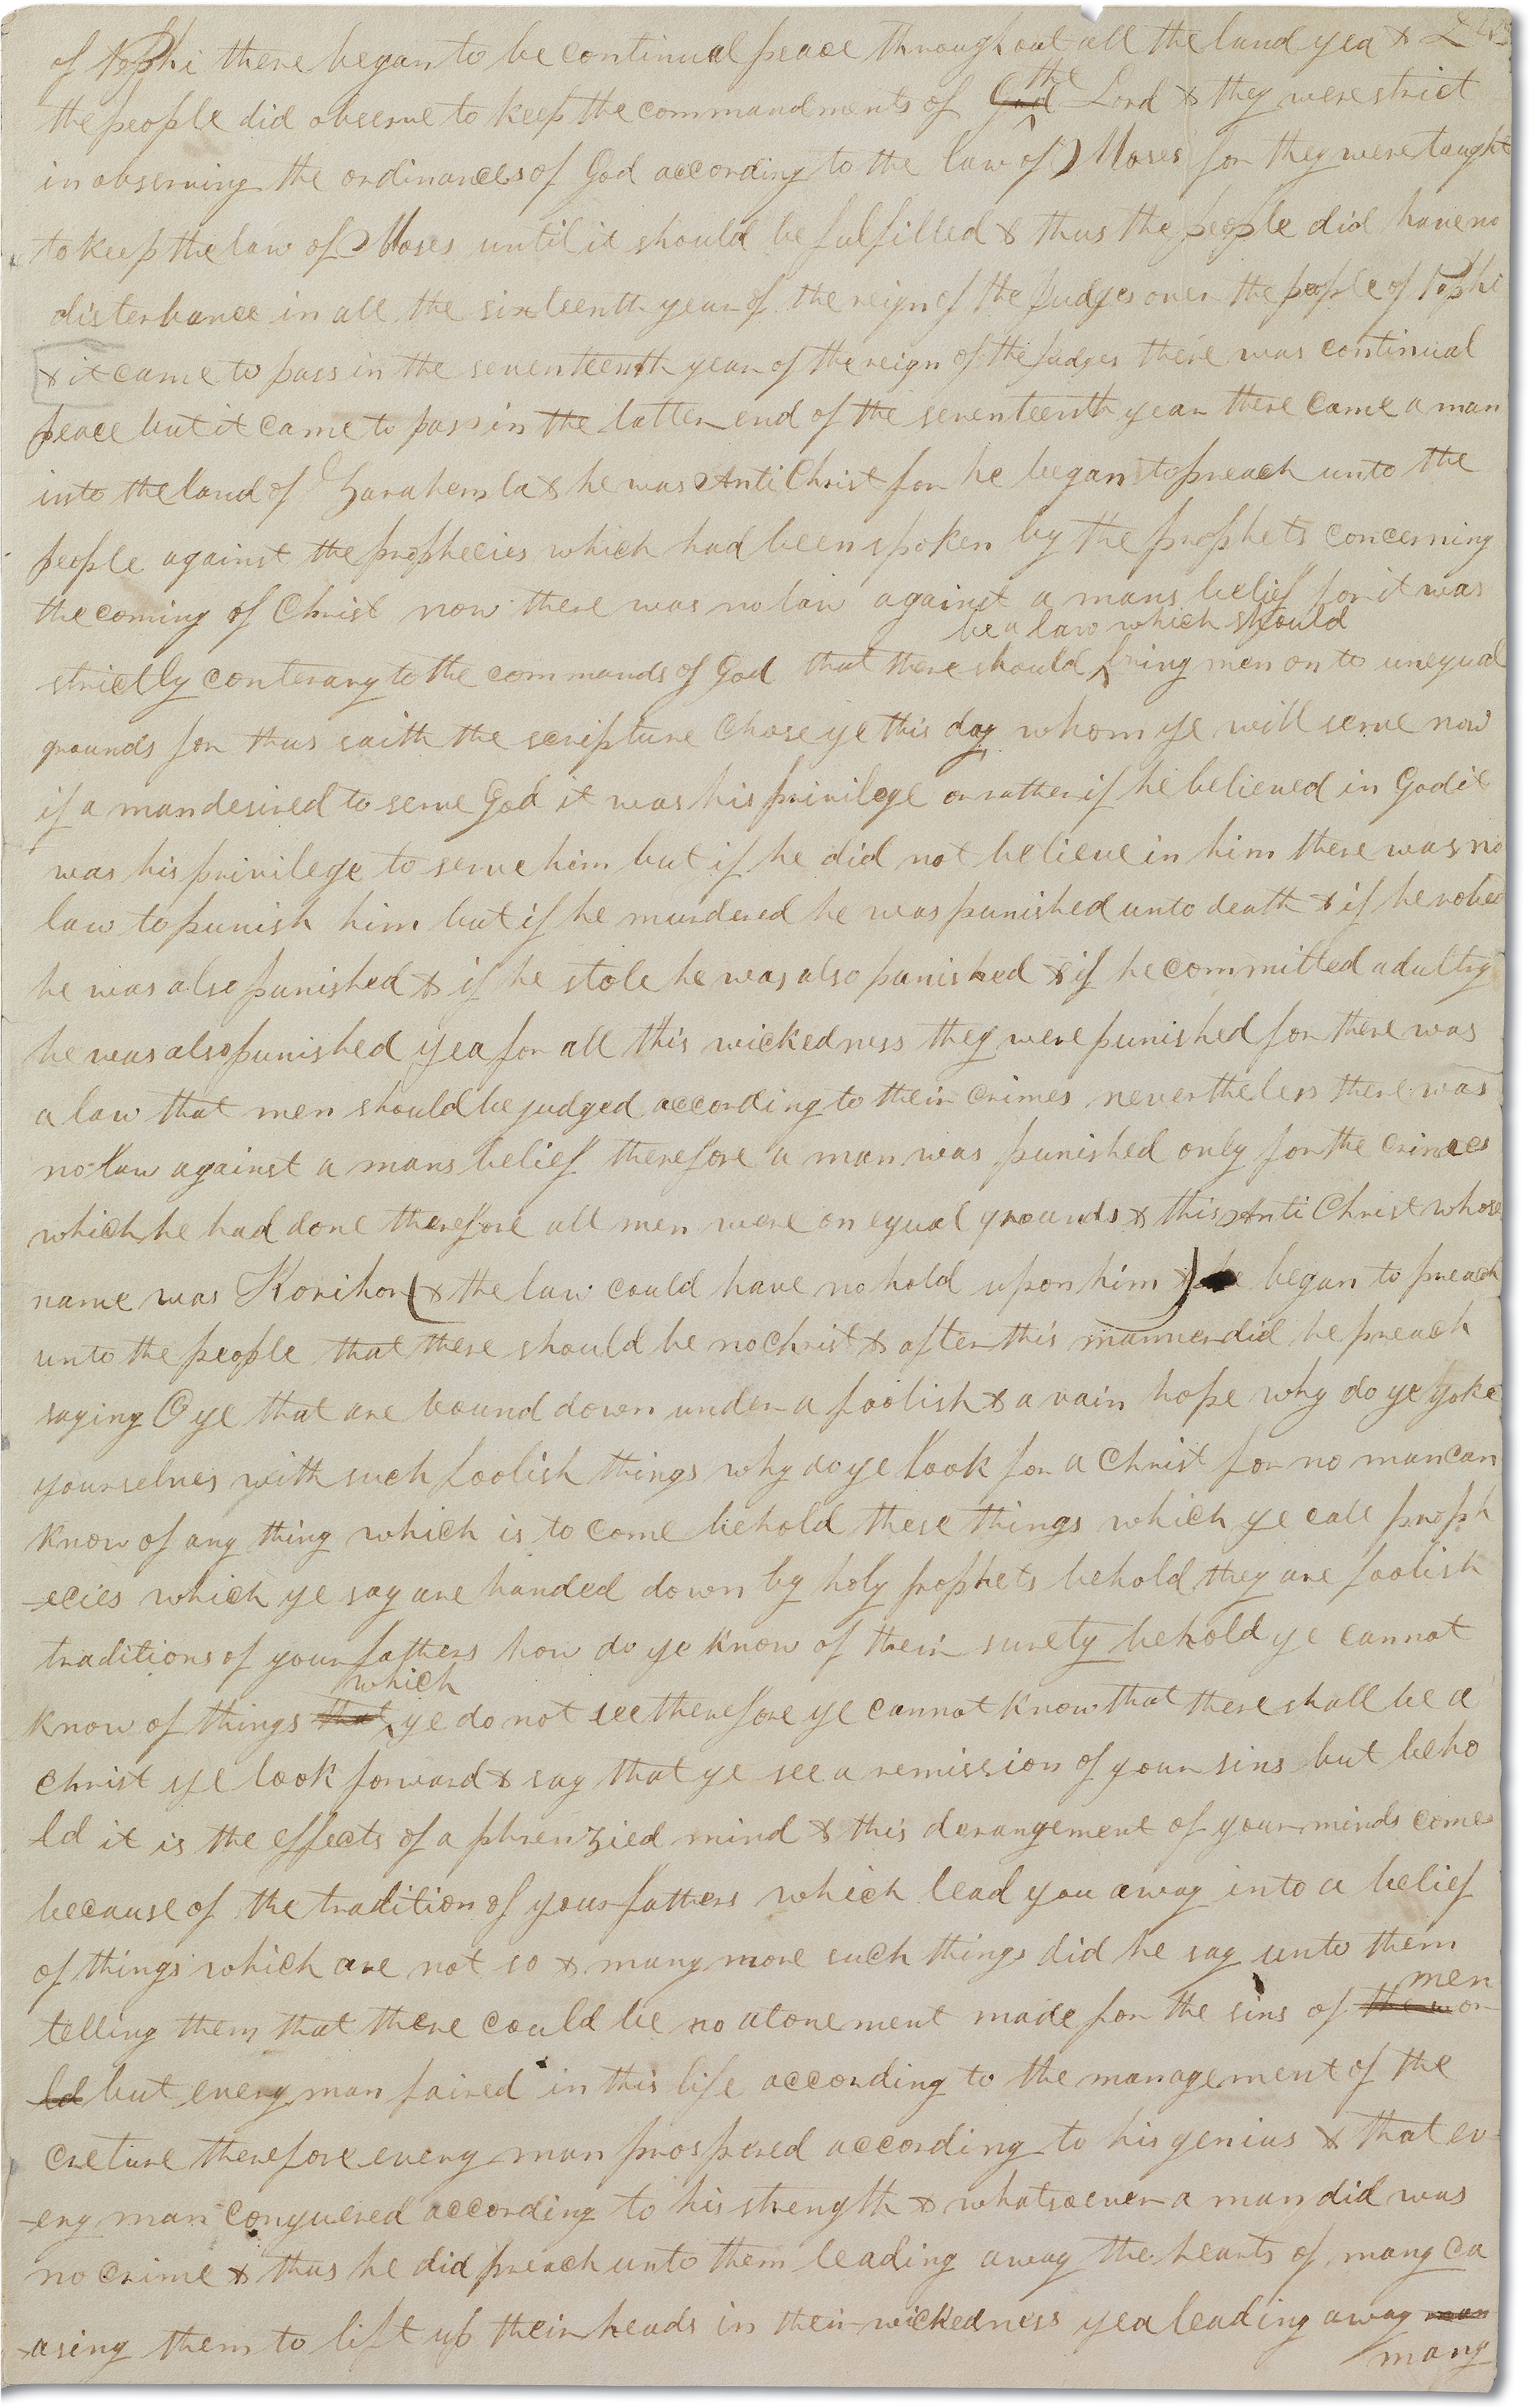 of Nephi there began to be continual peace throughout all the land yea &
the people did observe to keep the commandments of God the Lord & they were strict
in observing the ordinances of God according to the law of Moses for they were taught
to keep the law of Moses until it should be fulfilled & thus the people did have no
disterbance in all the sixteenth year of the reign of the Judges over the people of Nephi
& it came to pass in the seventeenth year of the reign of the Judges there was continual
peace but it came to pass in the latter end of the seventeenth year there came a man
into the land of Zarahemla & he was Anti Christ for he began to preach unto the
people against the prophecies which had been spoken by the prophets concerning
the coming of Christ now there was no law against a mans belief for it was
be a law which should
strictly conterary to the commands of God that there should bring men on to unequal
grounds for thus saith the scripture Chose ye this day whom ye will serve now
if a man desired to serve God it was his privilege or rather if he believed in God it
was his privilege to serve him but if he did not believe in him there was no
law to punish him but if he murdered he was punished unto death & if he robed
he was also punished & if he stole he was also punished & if he committed adultry
he was also punished yea for all this wickedness they were punished for there was
a law that men should be judged according to their crimes nevertheless there was
no law against a mans belief therefore a man was punished only for the crimes
which he had done therefore all men were on equal grounds & this Anti Christ whose
name was Korihor (& the law could have no hold upon him) & he began to preach
unto the people that there should be no Christ & after this manner did he preach
saying O ye that are bound down under a foolish & a vain hope why do ye yoke
yourselves with such foolish things why do ye look for a Christ for no man can
know of any thing which is to come behold these things which ye call proph
-ecies which ye say are handed down by holy prophets behold they are foolish
traditions of your fathers how do ye know of their surety behold ye cannot
which
know of things that ye do not see therefore ye cannot know that there shall be a
Christ ye look forward & say that ye see a remission of your sins but beho
ld it is the effects of a phrenzied mind & this derangement of your minds comes
because of the tradition of your fathers which lead you away into a belief
of things which are not so & many more such things did he say unto them
men
telling them that there could be no atonement made for the sins of the wor
ld but every man faired in this life according to the management of the
creture therefore every man prospered according to his genius & that ev
-ery man conquered according to his strength & whatsoever a man did was
no crime & thus he did preach unto them leading away the hearts of many ca
-asing them to lift up their heads in their wickedness yea leading away man
many